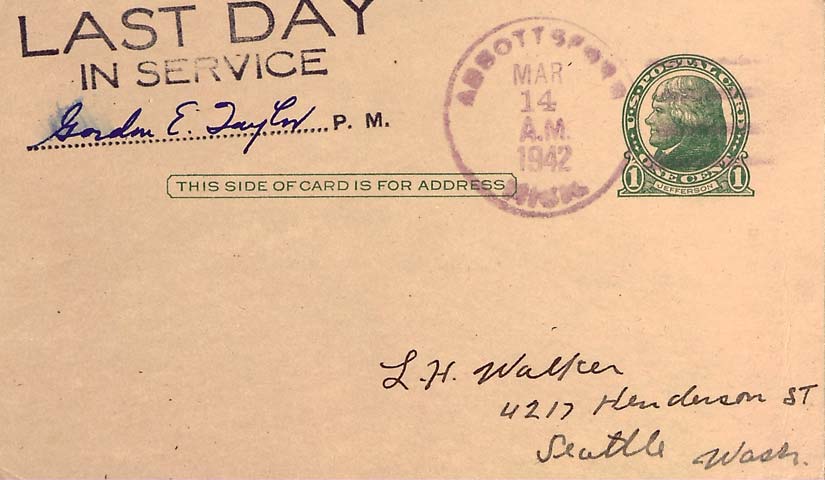 LAST DAY
IN SERVICE
Gordon E. Taylor P. M.
ABBOTTSFORD
MAR
14
A.M.
1942
MICH.
U.S. POSTAL CARD
ONE CENT
1 JEFFERSON 1
THIS SIDE OF CARD IS FOR ADDRESS
L.H. Walker
4217 Henderson ST
Seattle Wash.